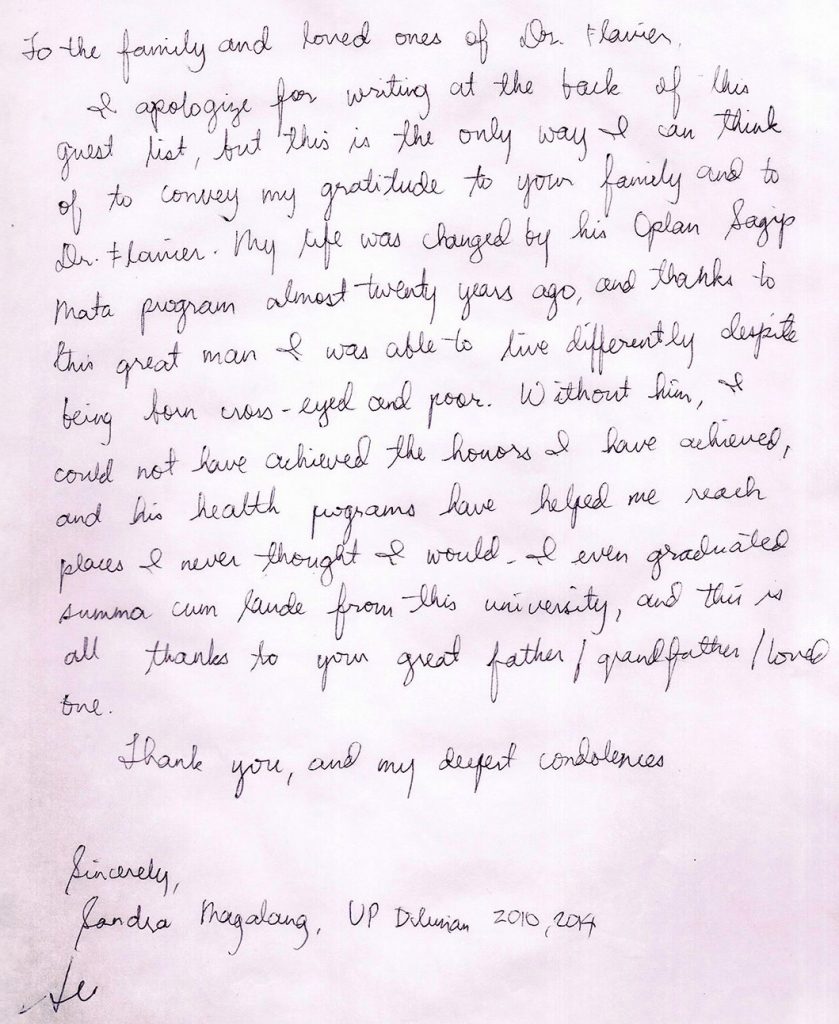 To the family and loved ones of Dr. Flavier,
I apologize for writing at the back of this
guest list, but this is the only way I can think
of to convey my gratitude to your family and to
Dr. Flavier. My life was changed by his Oplan Sagip
Mata program almost twenty years ago, and thanks to
this great man I was able to live differently despite
being born cross-eyed and poor. Without him, I
could not have achieved the honors I have achieved,
and his health programs have helped me reach
places I never thought I would. I even graduated
summa cum laude from this university, and this is
all thanks to your great father/grandfather/loved
one.
Thank you, and my deepest condolences
Sincerely,
Sandra Magalang, UP Diliman 2010, 2014